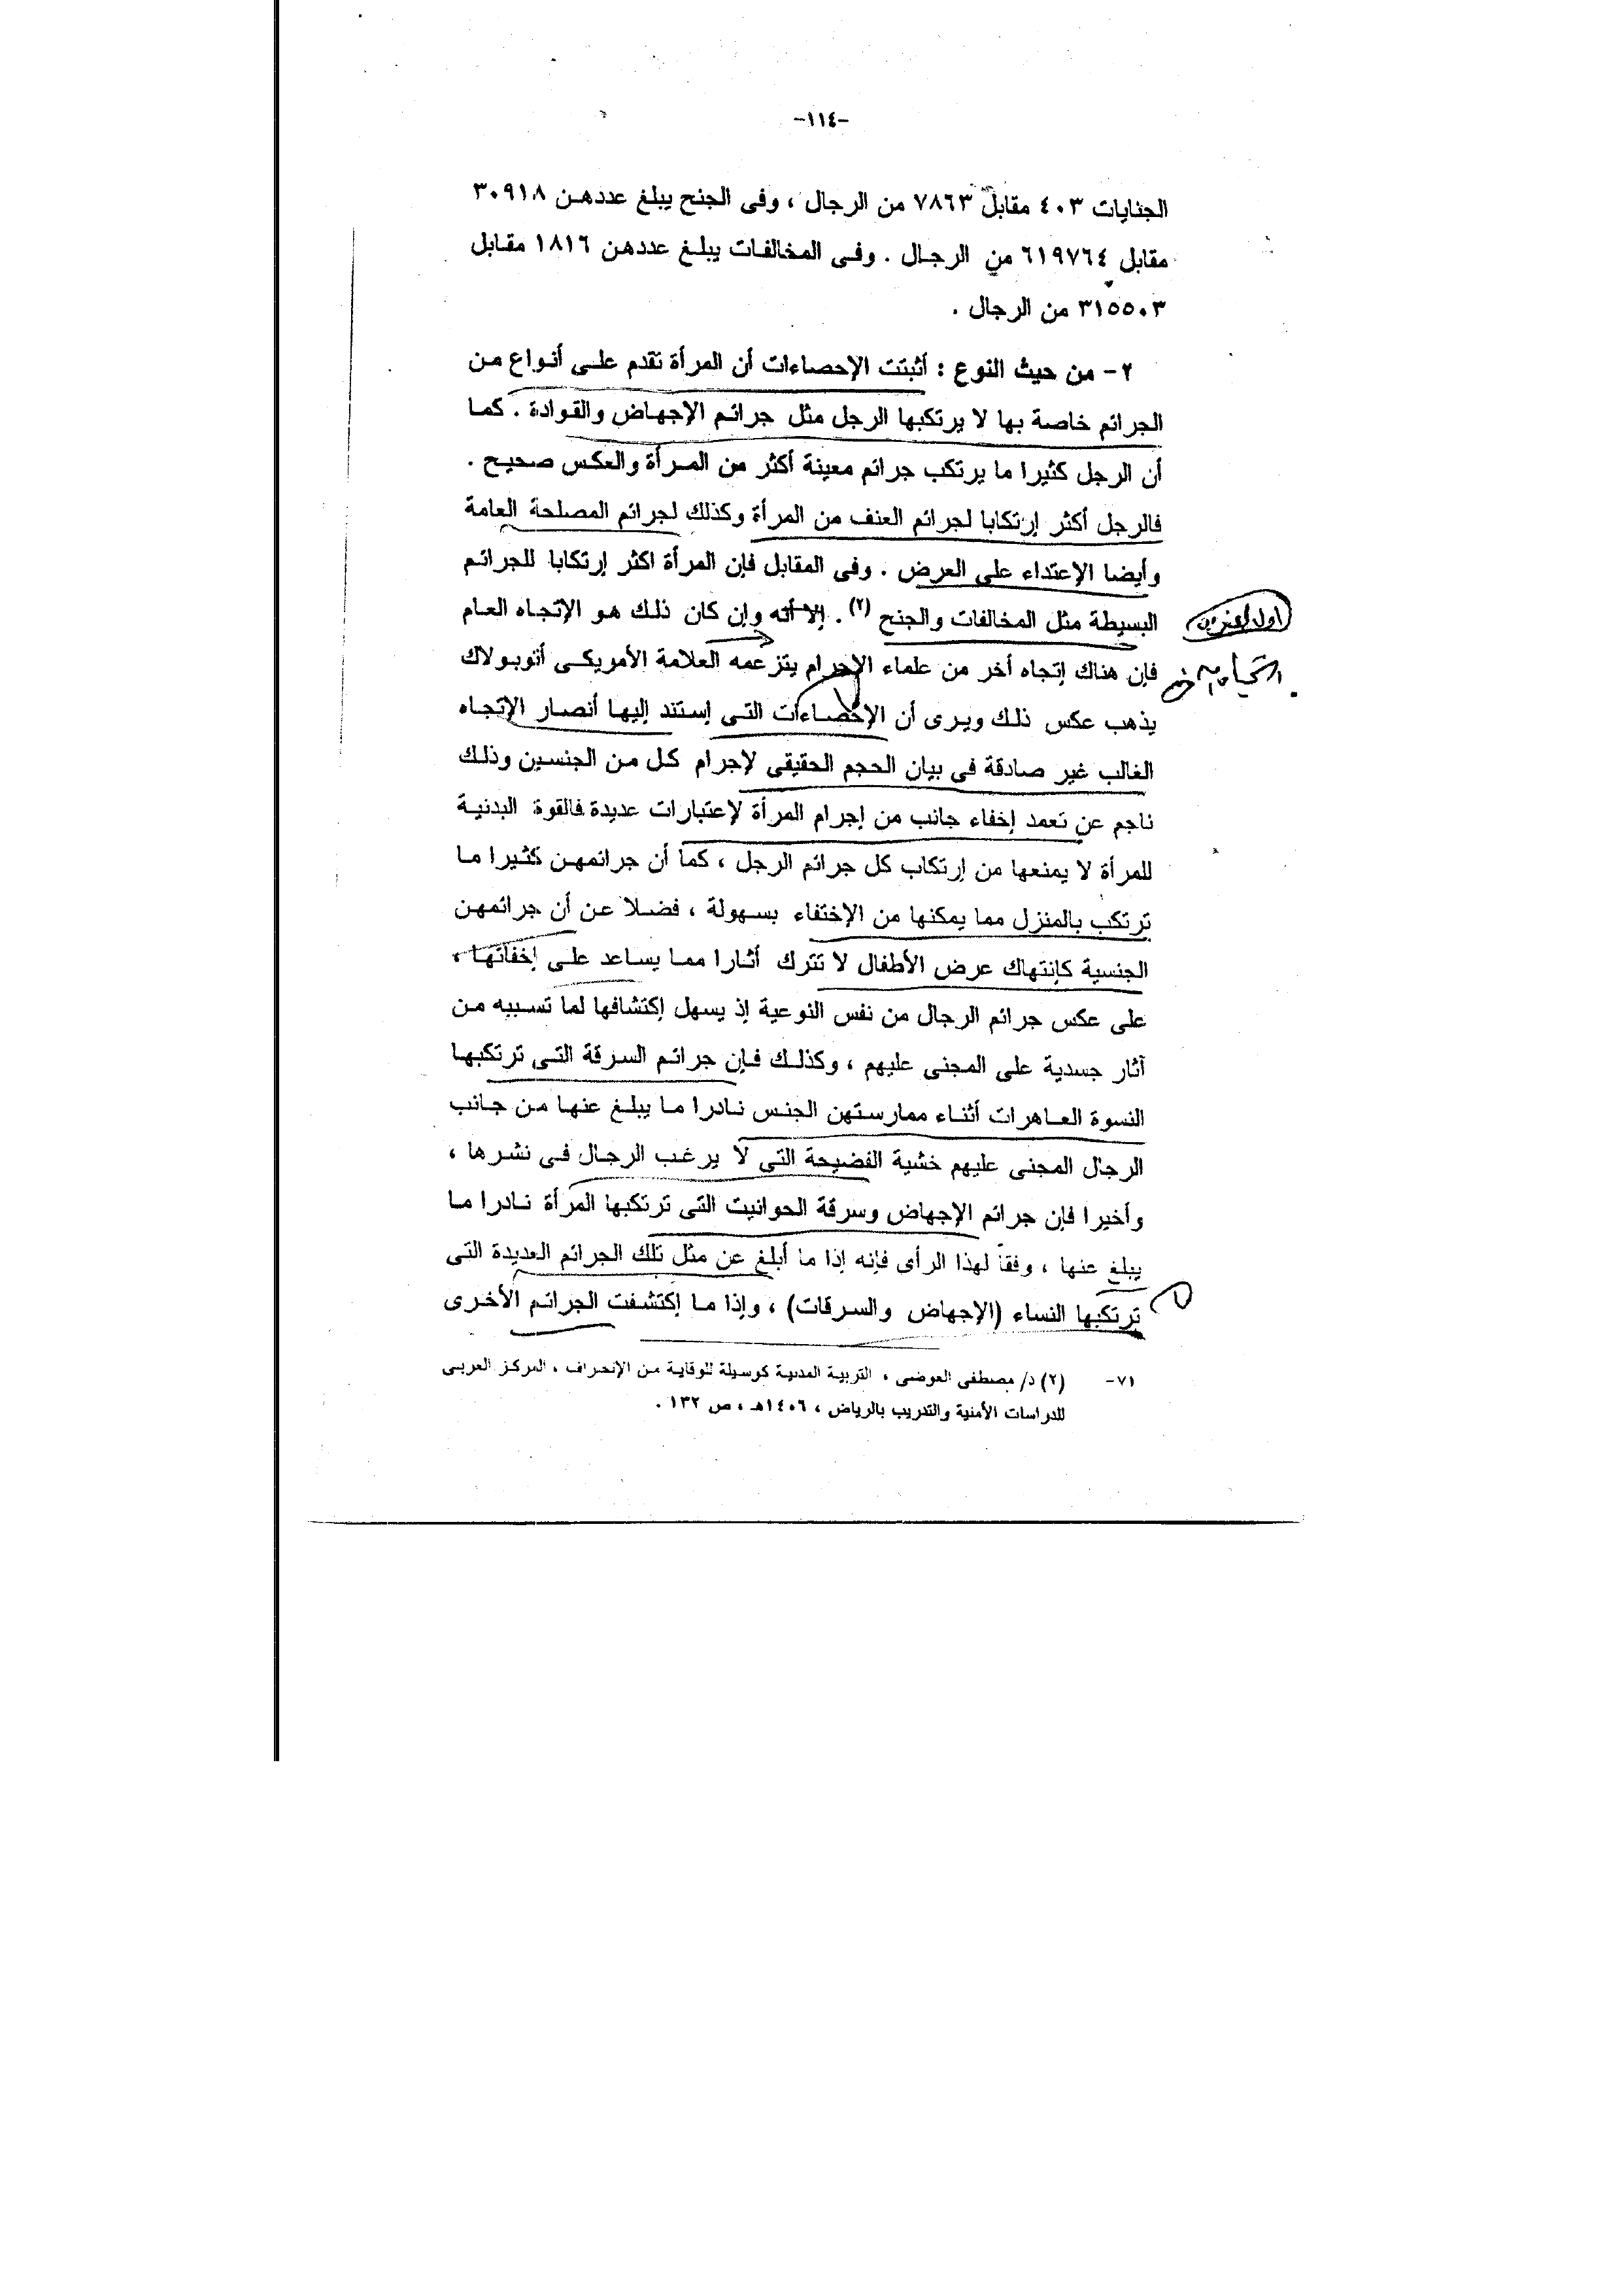 -١١٤-
الجنايات ٤٠٣ مقابل ٧٨٦٣ من الرجال ، وفى الجنح يبلغ عددهن ٣٠٩١٨
مقابل ٦١٩٧٦٤ من الرجال . وفى المخالفات يبلغ عددهن ١٨١٦ مقابل
٣١٥٥٠٣ من الرجال .
٢- من حيث النوع : أثبتت الإحصاءات أن المرأة تقدم على أنواع من
الجرائم خاصة بها لا يرتكبها الرجل مثل جرائم الإجهاض والقوادة . كما
أن الرجل كثيرا ما يرتكب جرائم معينة أكثر من المرأة والعكس صحيح .
فالرجل أكثر إرتكابا لجرائم العنف من المرأة وكذلك لجرائم المصلحة العامة
وأيضا الإعتداء على العرض . وفى المقابل فإن المرأة اكثر إرتكابا للجرائم
البسيطة مثل المخالفات والجنح (٢) . إلا أنه وإن كان ذلك هو الإتجاه العام
فإن هناك إتجاه أخر من علماء الإجرام يتزعمه العلامة الأمريكى أتوبولاك
يذهب عكس ذلك ويرى أن الإحصاءات التى إستند إليها أنصار الإتجاه
الغالب غير صادقة فى بيان الحجم الحقيقى لإجرام كل من الجنسين وذلك
ناجم عن تعمد إخفاء جانب من إجرام المرأة لإعتبارات عديدة فالقوة البدنية
للمرأة لا يمنعها من إرتكاب كل جرائم الرجل ، كما أن جرائمهن كثيرا ما
ترتكب بالمنزل مما يمكنها من الإختفاء بسهولة ، فضلا عن أن جرائمهن
الجنسية كإنتهاك عرض الأطفال لا تترك أثارا مما يساعد على إخفائها ،
على عكس جرائم الرجال من نفس النوعية إذ يسهل إكتشافها لما تسببه من
آثار جسدية على المجنى عليهم ، وكذلك فإن جرائم السرقة التى ترتكبها
النسوة العاهرات أثناء ممارستهن الجنس نادرا ما يبلغ عنها من جانب
الرجال المجنى عليهم خشية الفضيحة التى لا يرغب الرجال فى نشرها ،
وأخيرا فإن جرائم الإجهاض وسرقة الحوانيت التى ترتكبها المرأة نادرا ما
يبلغ عنها ، وفقا لهذا الرأى فإنه إذا ما أبلغ عن مثل تلك الجرائم العديدة التى
ترتكبها النساء (الإجهاض والسرقات) ، وإذا ما إكتشفت الجرائم الأخرى
٧١- (٢) د/ مصطفى العوضى ، التربية المدنية كوسيلة للوقاية من الإنحراف ، المركز العربى
للدراسات الأمنية والتدريب بالرياض ، ١٤٠٦هـ ، ص ١٣٢ .